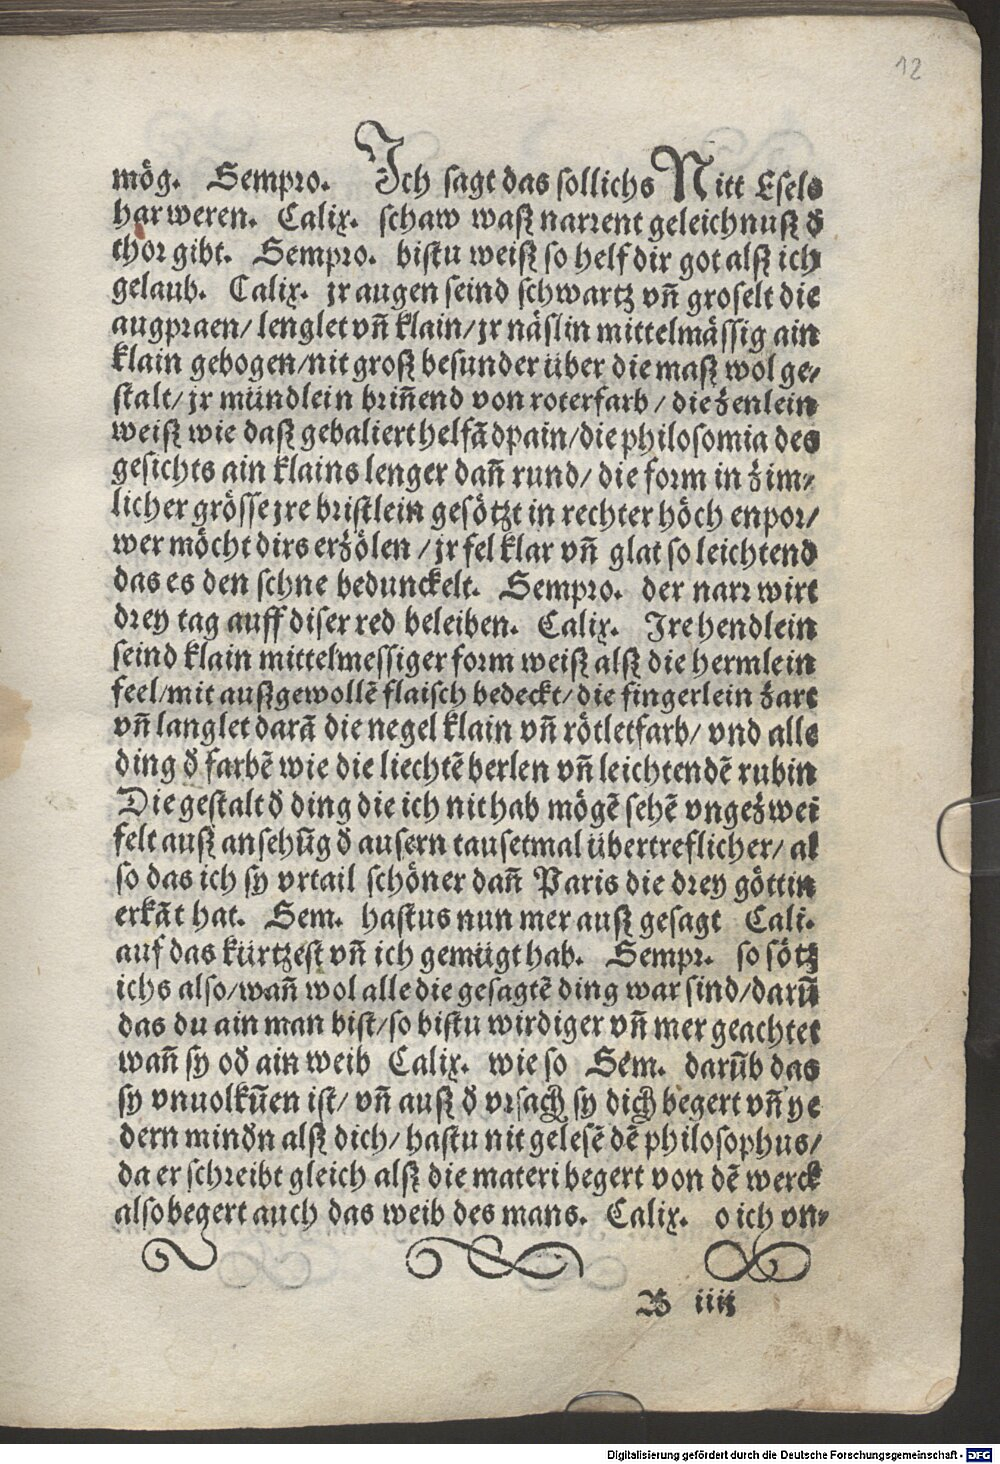 12
mög. Sempro. Ich sagt das sollichs Nitt Esels
har weren. Calix. schaw waß narrent geleichnuß ð
thor gibt. Sempro. bistu weiß so helf dir got alß ich
gelaub. Calix. jr augen seind schwartz vñ groselt die
augpraen/ lenglet vñ klain/ jr näslin mittelmässig ain
klain gebogen/ nit groß besunder über die maß wol ge⸗
stalt/ jr mündlein briñend von roter farb/ die zenlein
weiß wie daß gebaliert helfãdpain/ die philosomia des
gesichts ain klains lenger dañ rund/ die form in zim⸗
licher grösse jre bristlein gesötzt in rechter höch enpor/
wer möcht dirs erzölen/ jr fel klar vñ glat so leichtend
das es den schne bedunckelt. Sempro. der narr wirt
drey tag auff diser red beleiben. Calix. Ire hendlein
seind klain mittelmessiger form weiß alß die hermlein
feel/ mit außgewollẽ flaisch bedeckt/ die fingerlein zart
vñ langlet darã die negel klain vñ rötletfarb/ vnd alle
ding ð farbẽ wie die liechtẽ berlen vñ leichtendẽ rubin
Die gestalt ð ding die ich nit hab mögẽ sehẽ vngezwei
felt auß ansehũg ð ausern tausetmal übertreflicher/ al
so das ich sy vrtail schöner dañ Paris die drey göttin
erkãt hat. Sem. hastus nun mer auß gesagt Cali.
auf das kürtzest vñ ich gemügt hab. Sempr. so sötz
ichs also/ wañ wol alle die gesagtẽ ding war sind/ darũ
das du ain man bist/ so bistu wirdiger vñ mer geachtet
wañ sy oð ain weib Calix. wie so Sem. darũb das
sy vnuolkũen ist/ vñ auß ð vrsach sy dich begert vñ ye
dern minðn alß dich/ hastu nit gelesẽ dẽ philosophus/
da er schreibt gleich alß die materi begert von dẽ werck
also begert auch das weib des mans. Calix. o ich vn⸗
B iiij
Digitalisierung gefördert durch die Deutsche Forschungsgemeinschaft - DFG